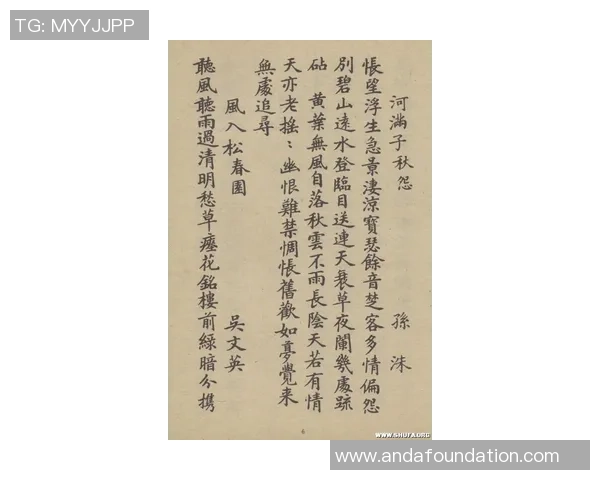 TG: MYYJJPP
河滿子秋怨　孫洙
悵望浮生急景淒涼寶瑟餘音楚客多情偏怨
別碧山遠水登臨目送連天衰草夜闌幾處踈
砧　黃葉無風自落秋雲不雨長陰天若有情
天亦老搖〻幽恨難禁惆悵舊歡如夢覺来
無處追尋
風入松春園　吳文英
聽風聽雨過清明愁草瘞花銘樓前綠暗分攜
6
WWW.SHUFA.ORG
www.andafoundation.com